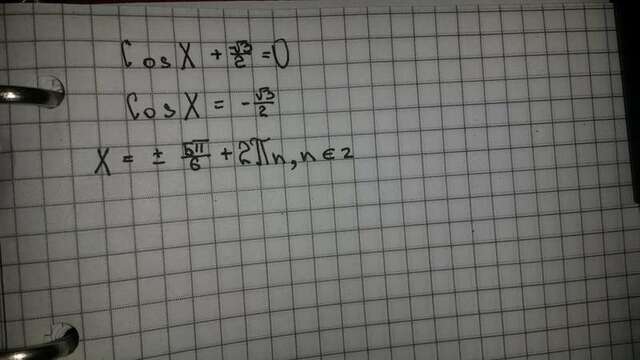 Cos X + √3/2 = 0
Cos X = -√3/2
X = ± 5π/6 + 2πn, n ∈ z